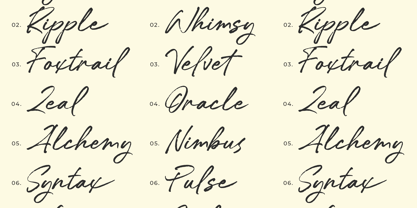 02. Ripple 02. Whimsy 02. Ripple
03. Foxtrail 03. Velvet 03. Foxtrail
04. Zeal 04. Oracle 04. Zeal
05. Alchemy 05. Nimbus 05. Alchemy
06. Syntax 06. Pulse 06. Syntax